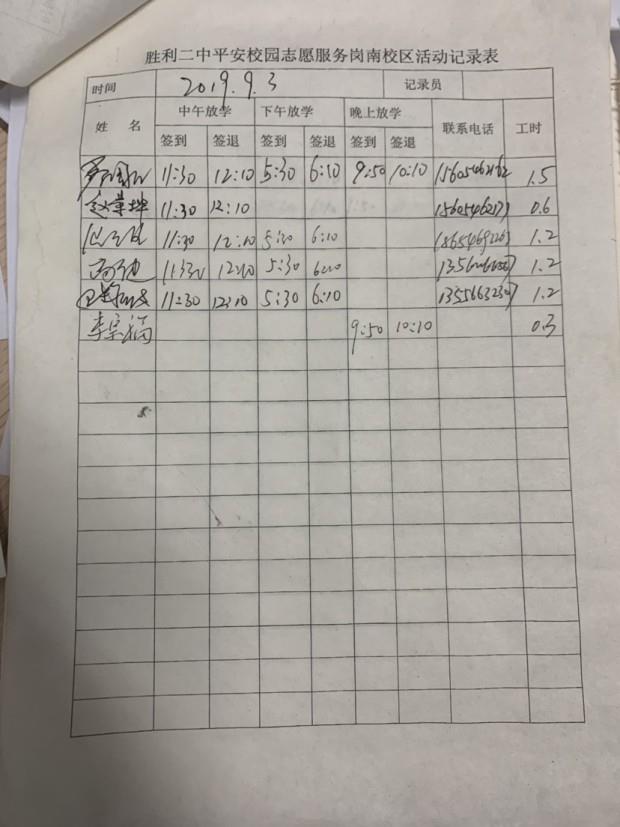 胜利二中平安校园志愿服务岗南校区活动记录表
时间 2019.9.3 记录员
姓 名 中午放学 下午放学 晚上放学 联系电话 工时
签到 签退 签到 签退 签到 签退
11:30 12:10 5:30 6:10 9:50 10:10 1.5
11:30 12:10 0.6
11:30 12:10 5:30 6:10 1.2
11:30 12:10 5:30 6:10 1.2
11:30 12:10 5:30 6:10 1.2
李宗福 9:50 10:10 0.3